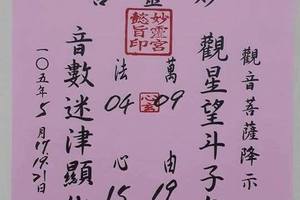 觀音菩薩降示
觀星望斗子
萬09
由19
妙靈宮
懿旨印
法04
心15
音數迷津顯
一〇五年5月17.19.21日